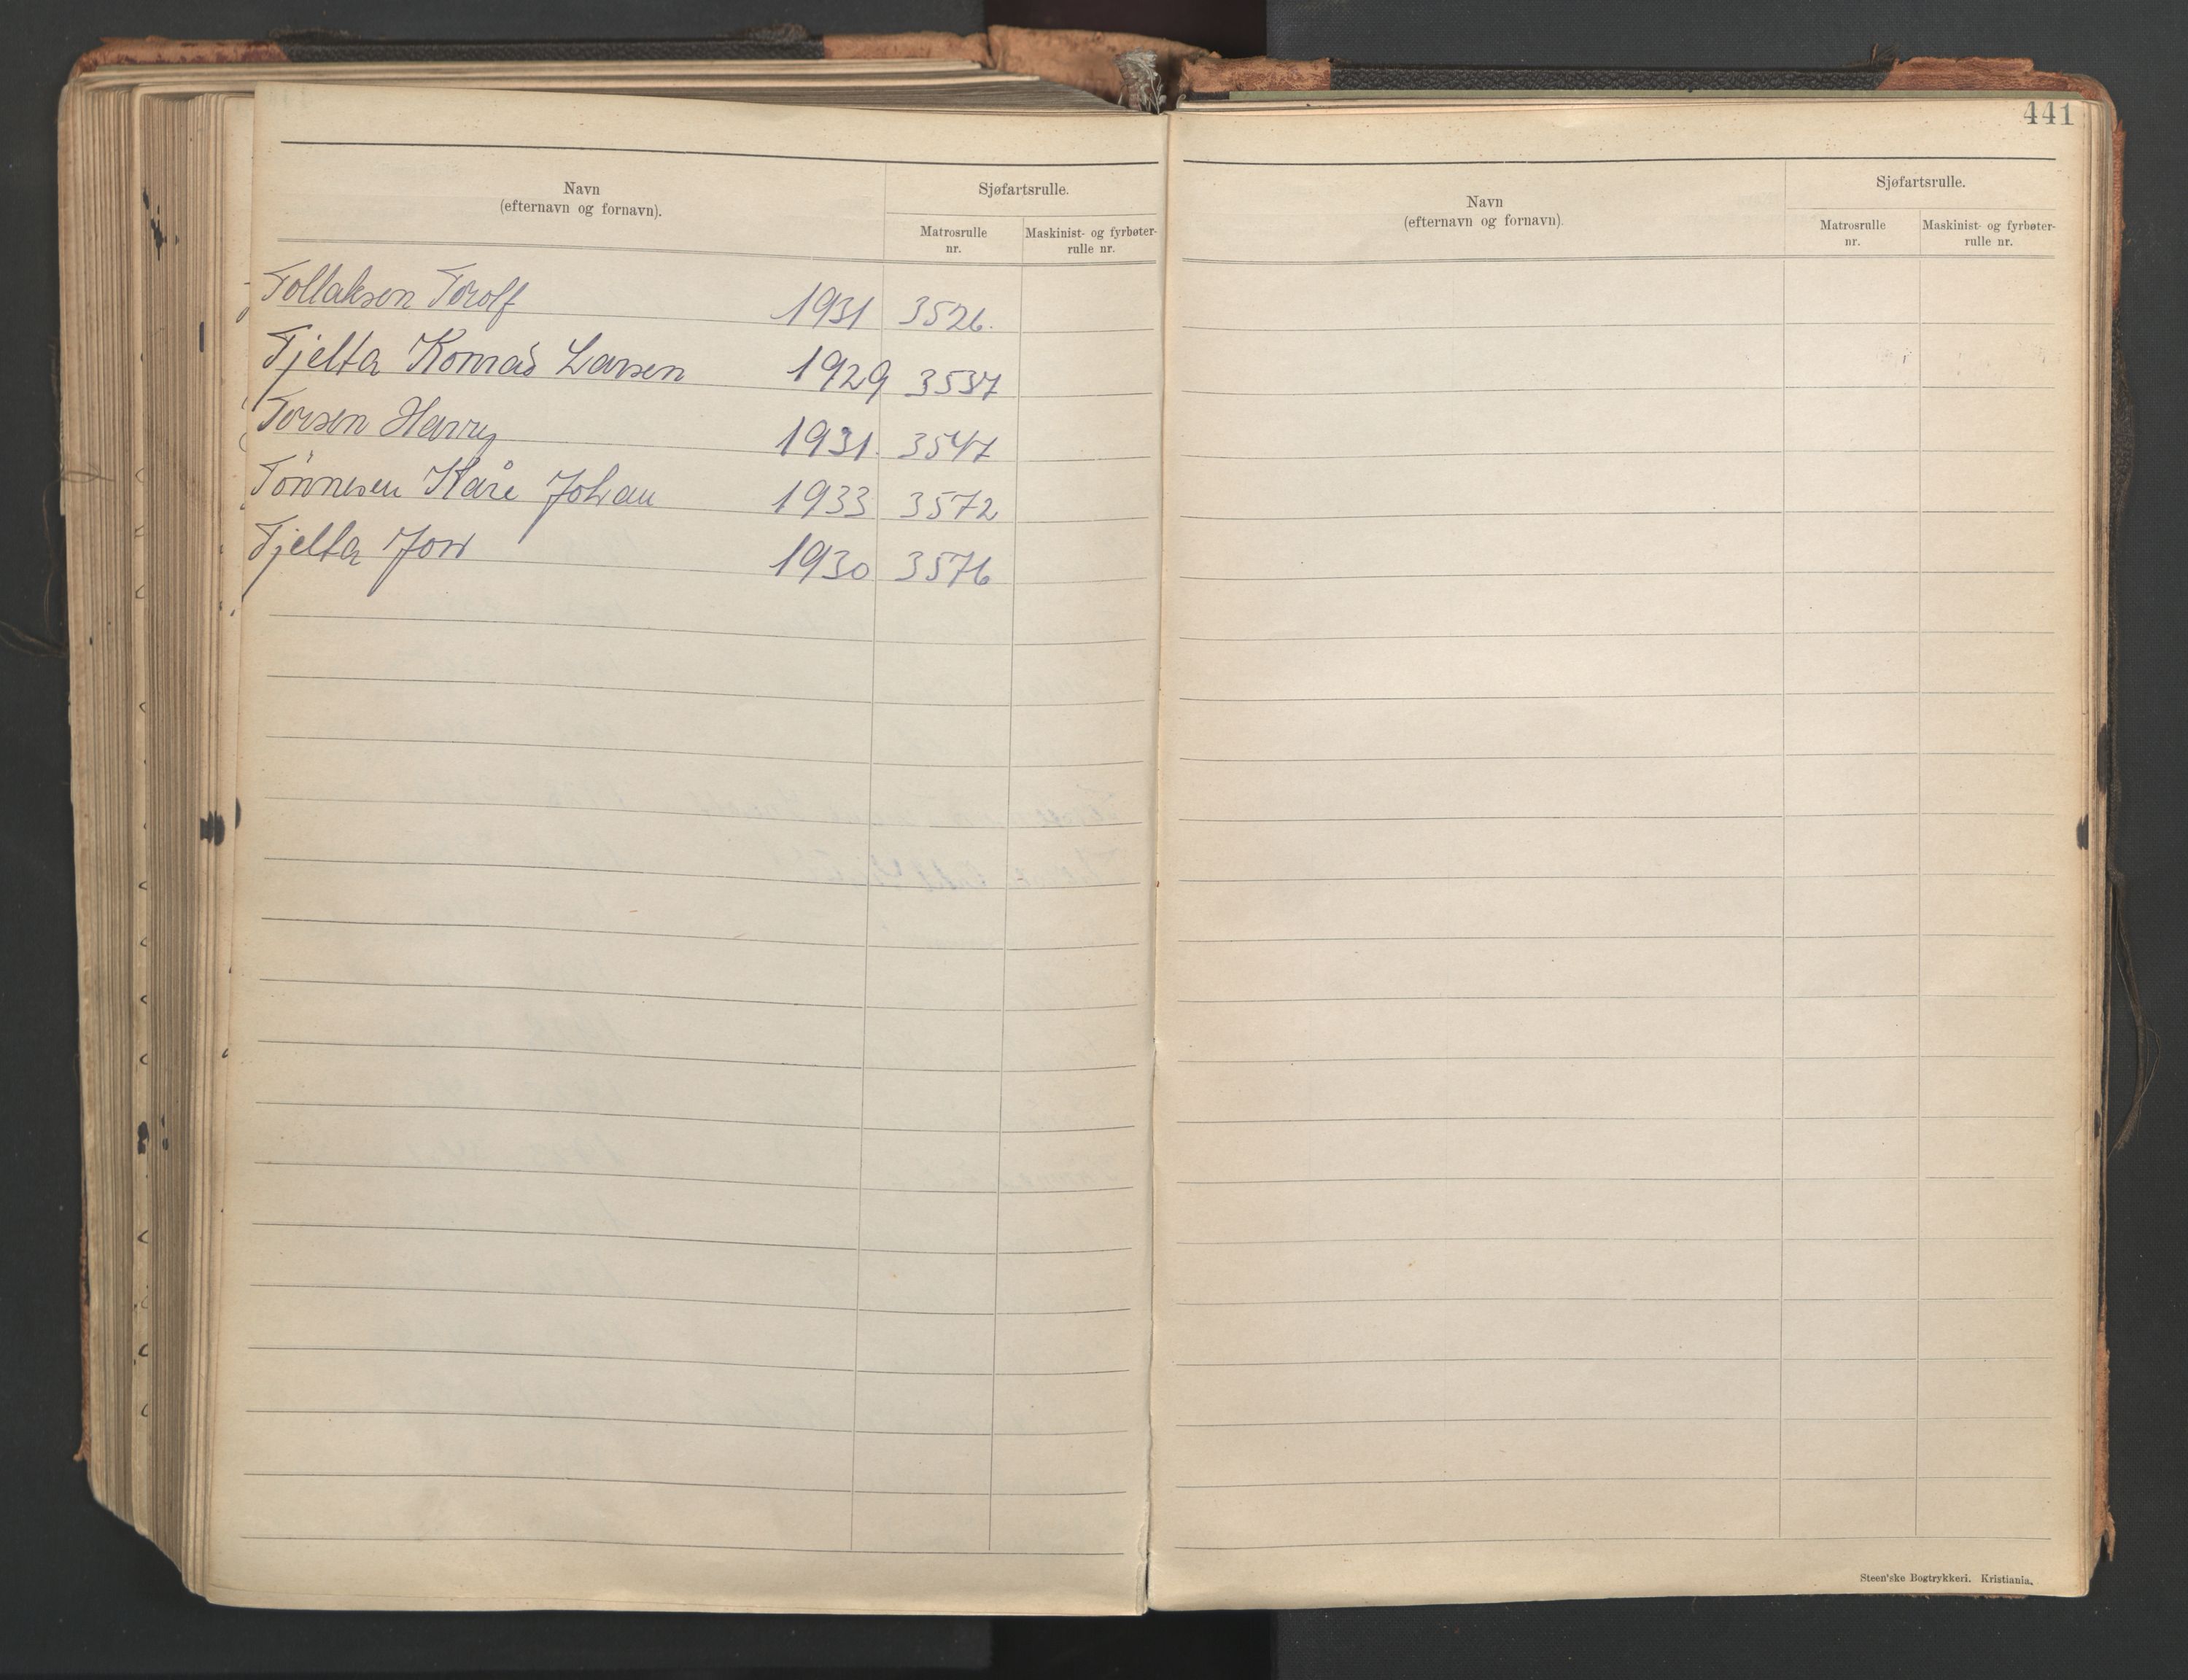 Navn
(efternavn og fornavn).
Sjøfartsrulle.
Matrosrulle nr.
Maskinist- og fyrbøter-rulle nr.
Tollaksen Torolf 1931 3526.
Tjelta Konrad Larsen 1929 3537
Torsen Harry 1931. 3547
Tönnesen Kåre Johan 1933 3572
Tjelta Jon 1930 3576
441
Navn
(efternavn og fornavn).
Sjøfartsrulle.
Matrosrulle nr.
Maskinist- og fyrbøter-rulle nr.
Steen'ske Bogtrykkeri. Kristiania.